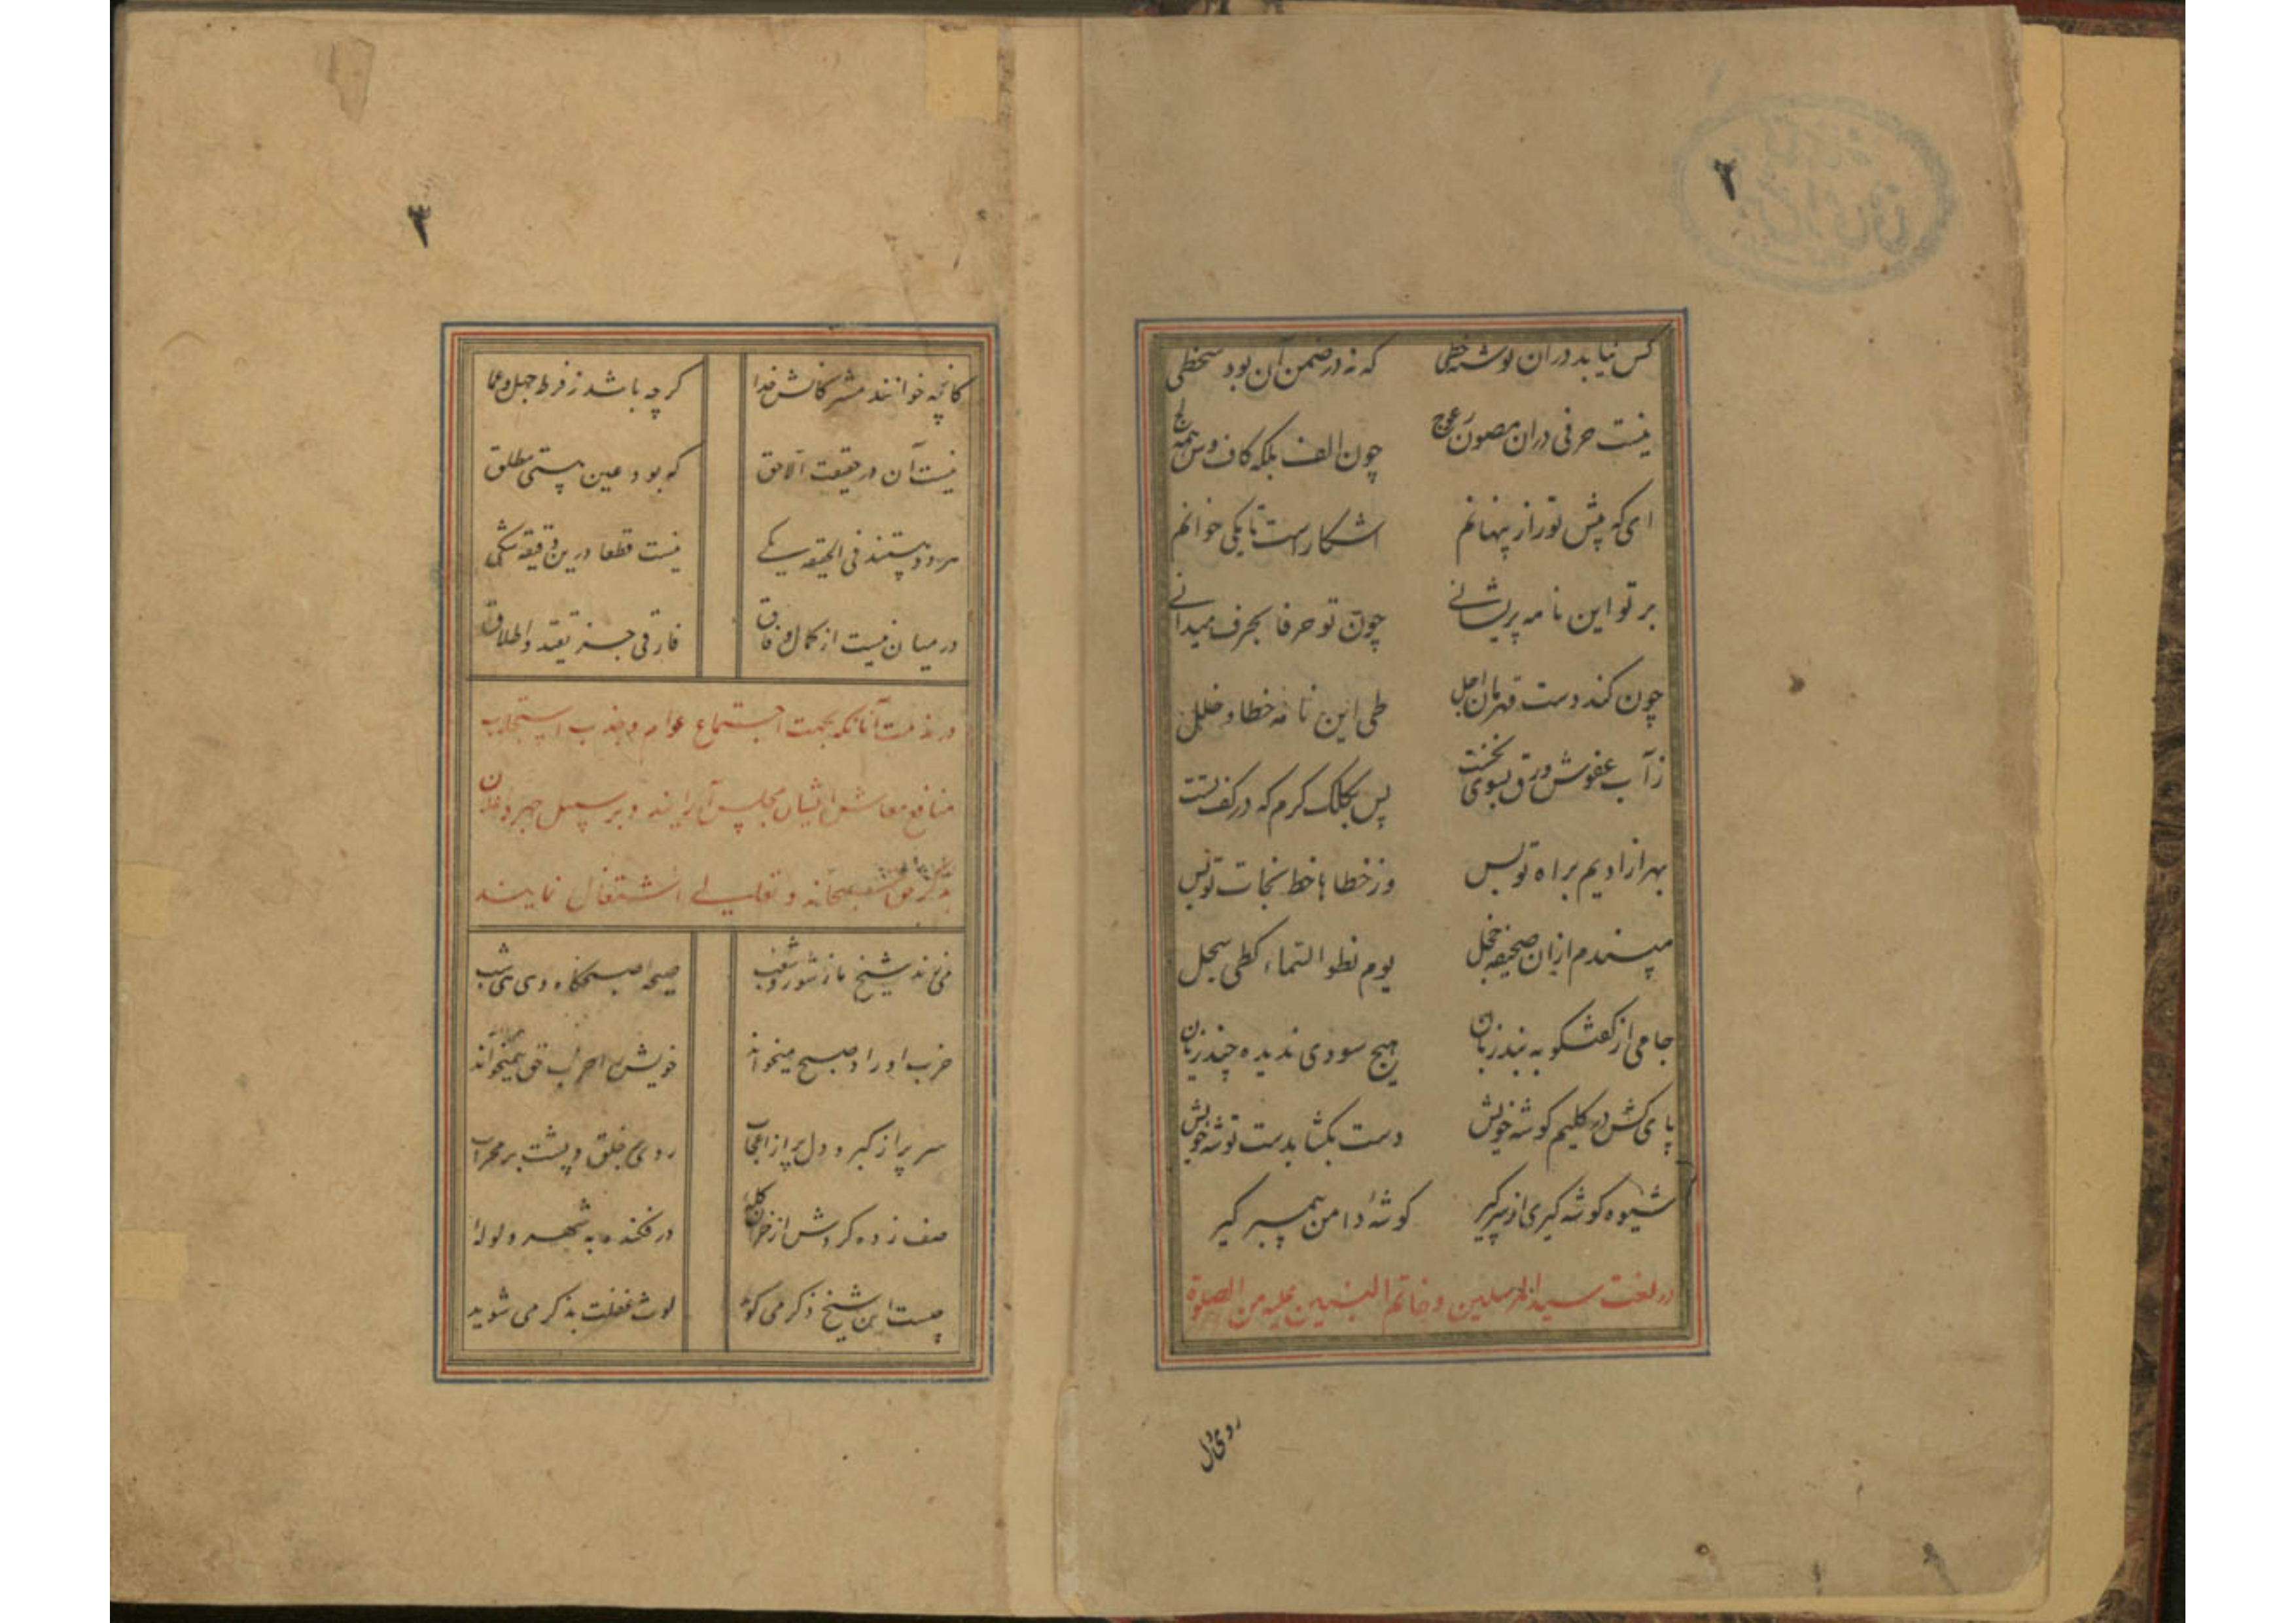 ۲
کس نیابد در ان نوشته خطی که نه در ضمن آن بود سخطی
نیست حرفی در ان مصون ز عوج چون الف بلکه کاف وش همه کج
ای که پیش تو راز پنهانم اشکارست تا یکی خوانم
بر تو این نامه پریشانی چون تو حرفا بحرف میدانی
چون کند دست قهرمان اجل طی این نامه خطا و خلل
ز آب عفوش ورق بشوی نخست پس بکلک کرم که در کف تست
بهر ازادیم براه نویس وز خطاها خط نجات نویس
مپسندم ازان صحیفه خجل یوم نطو السماء کطی سجل
جامی از گفتگو به بند زبان هیچ سودی ندیده چند زیان
پای کش در کلیم کوشه خویش دست بکشا بدست توشه خویش
شیوه کوشه کیری از سر کیر کوشهٔ دامن پیمبر کیر
در نعت سید المرسلین و خاتم النبیین علیه من الصلوة
روی دل
۳
کانچه خوانند مشرکانش خدا کرچه باشد ز فرط جهل و عما
نیست آن در حقیقت الا حق که بود عین هستی مطلق
هر دو هستند فی الحقیقه یکے نیست قطعا درین دقیقه شکی
در میان نیست از کمال وفاق فارقی جز تقید و اطلاق
در مذمت آنانکه بجهت اجتماع عوام و جذب استجلاب
منافع معاش ایشان مجلس آرایند و بر سبیل جهر و اعلان
بذکر حق سبحانه و تعالے اشتغال نمایند
می زند شیخ ما ز شور و شغب صیحه صبحکاه و دی شب
حزب اوراد صبح میخواند خویش را حزب حق همیخواند
سر پر از کبر و دل پر از اعجاب روی بخلق و پشت بر محراب
صف زده کردش از خران کله در فکنده به شهر ولوله
چیست این شیخ ذکر می کوید لوث غفلت بذکر می شوید